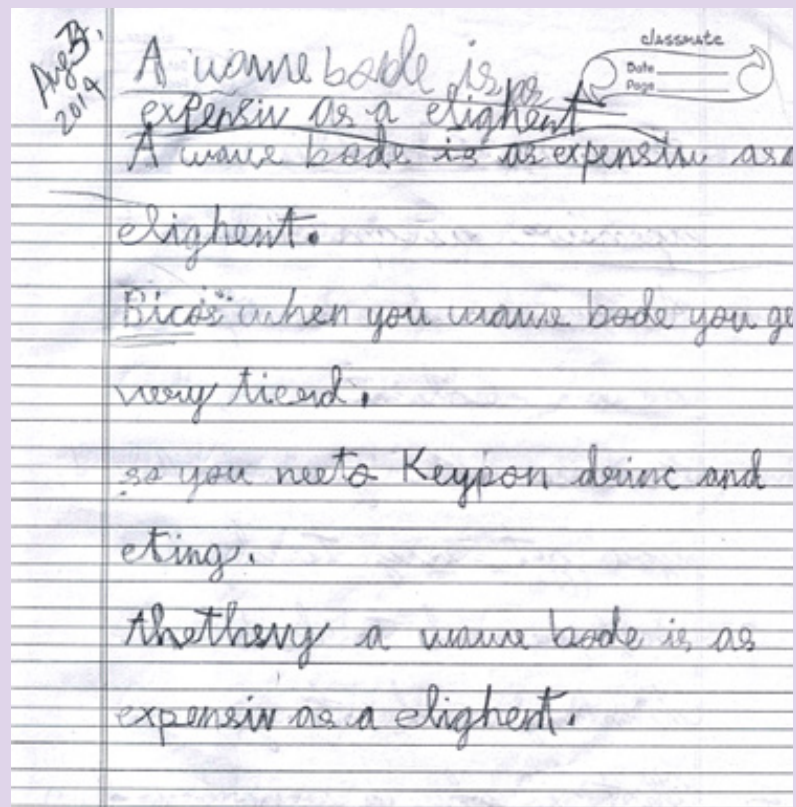 Aug 3,
2019
classmate
Date
Page
A wave bode is as
expensiv as a elighent
A wave bode is as expensiv as a
elighent.
Bicos when you wave bode you ge
very tierd.
so you neeto Keypon drinc and
eting.
thethsvy a wave bode is as
expensiv as a elighent.